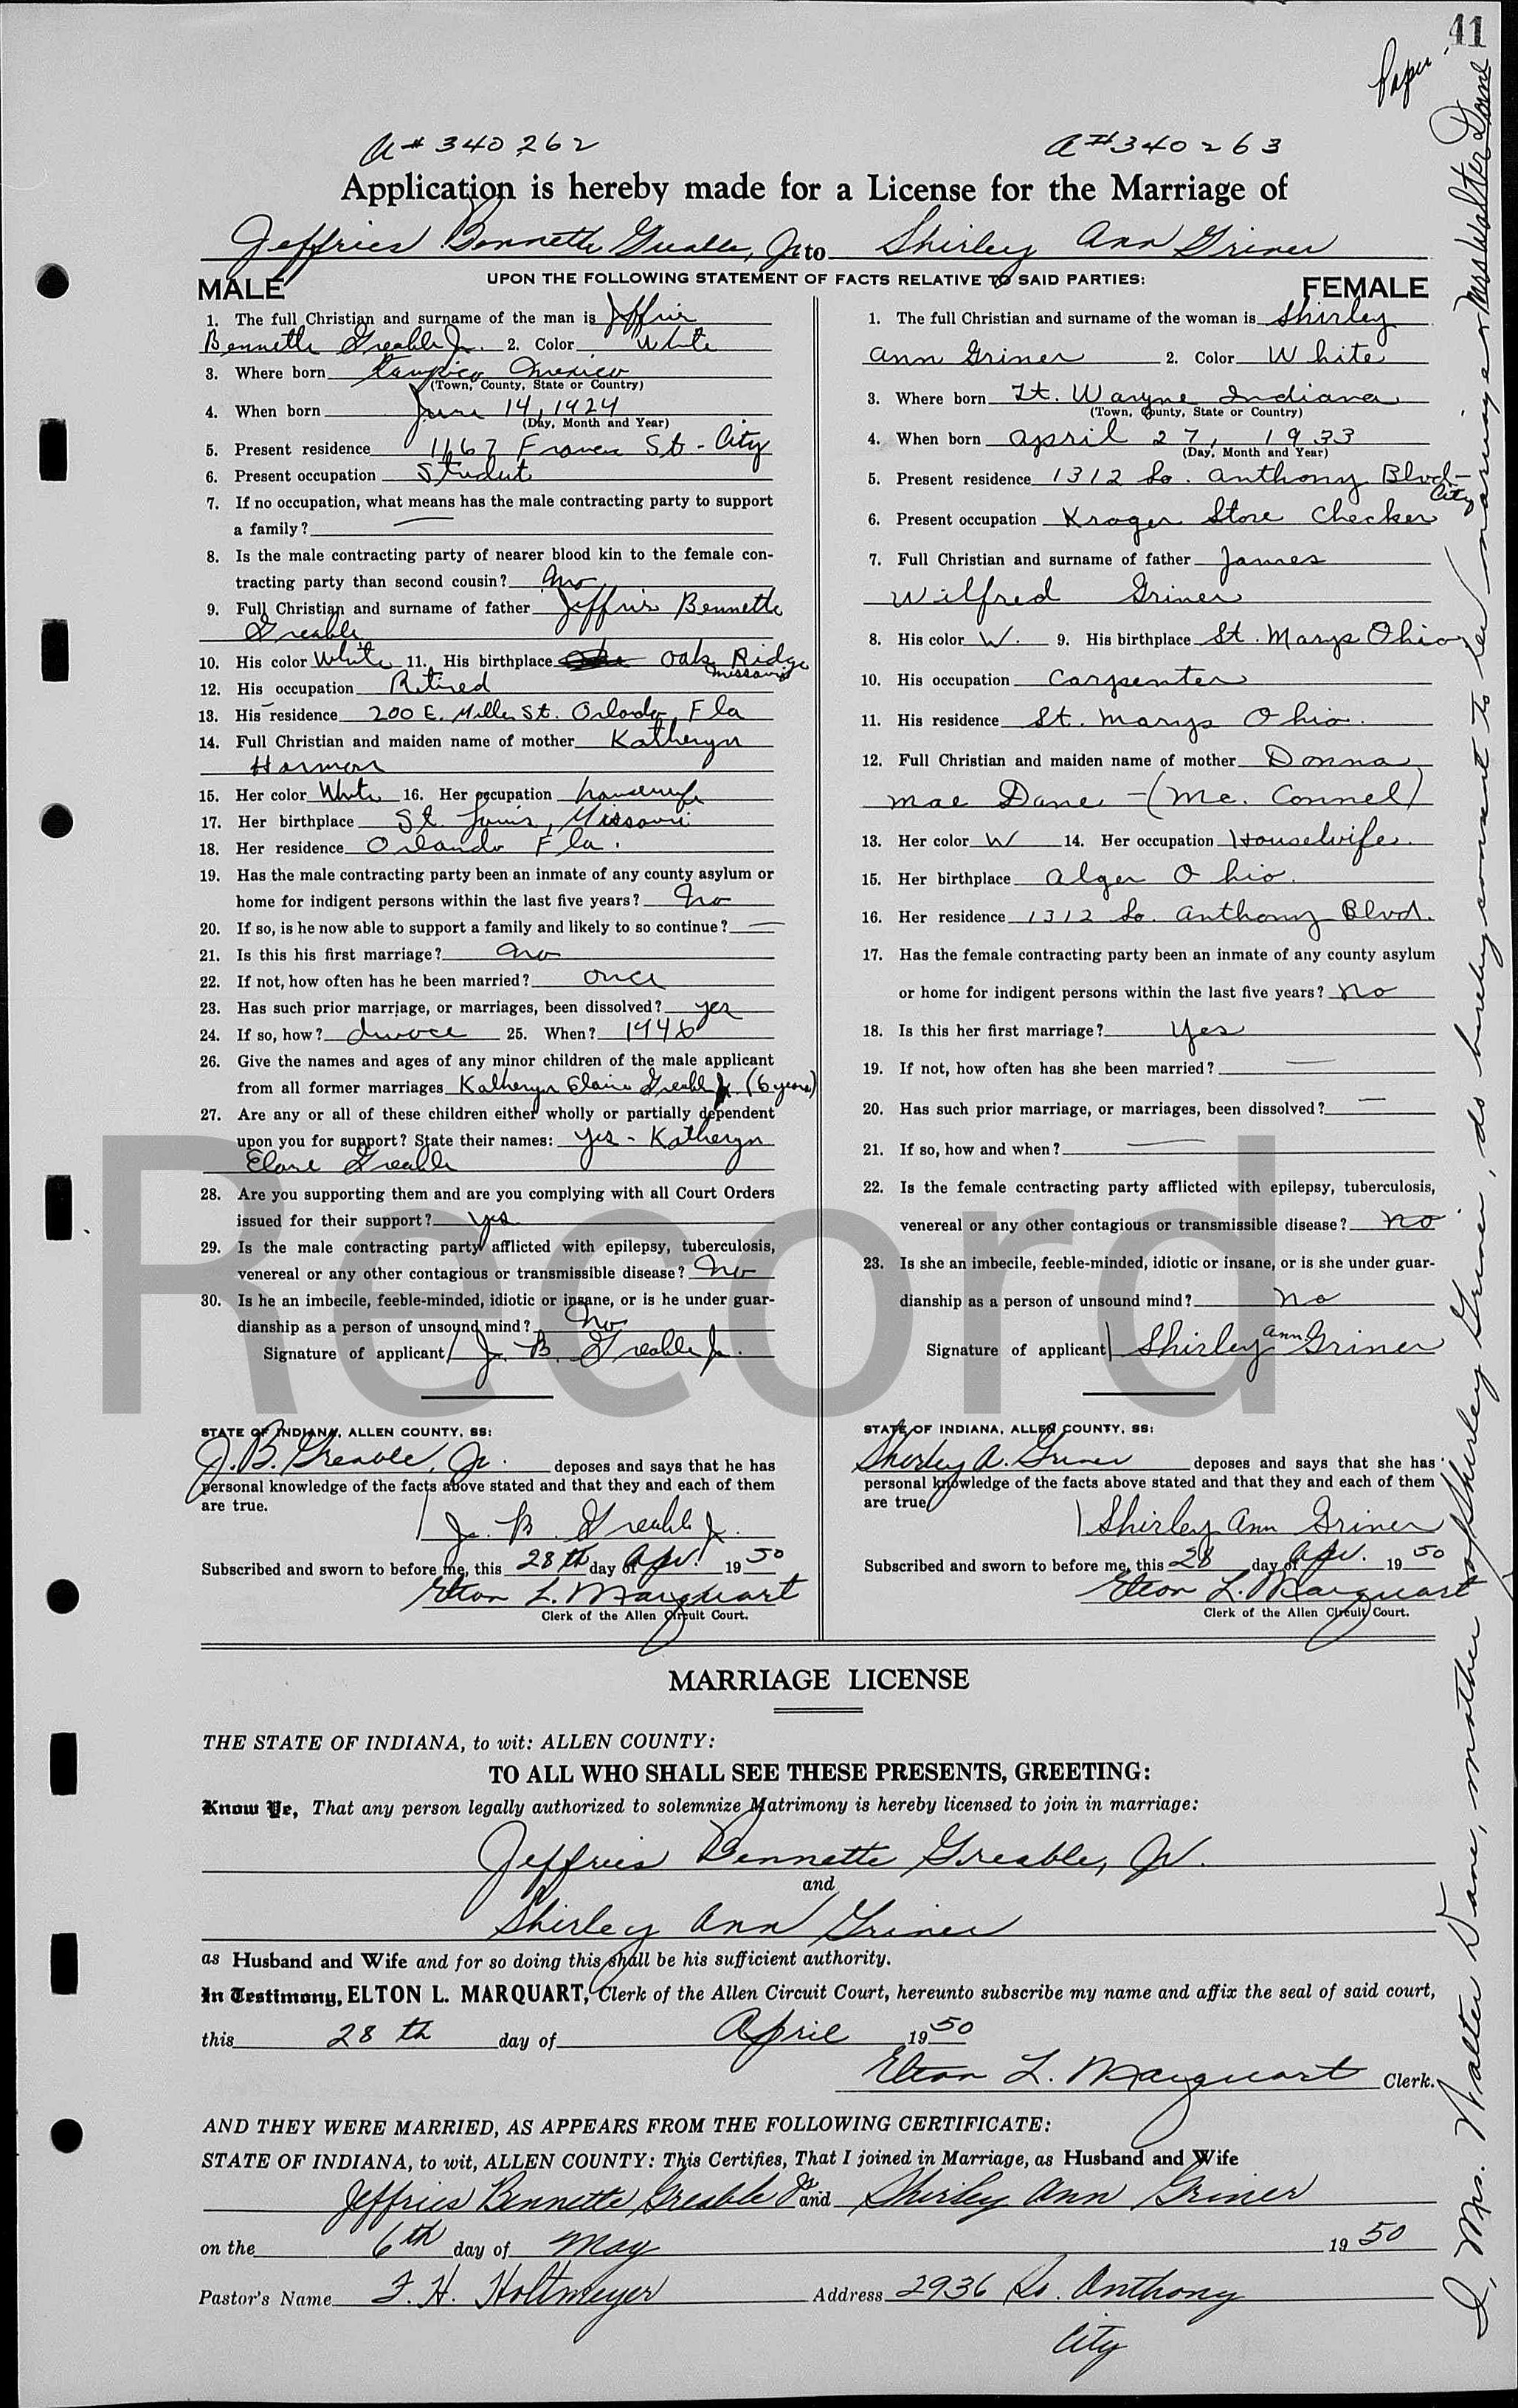 41
Paper
A# 340262
A# 340263
Application is hereby made for a License for the Marriage of
Jeffries Bennette Greable, Jr to Shirley Ann Griner
UPON THE FOLLOWING STATEMENT OF FACTS RELATIVE TO SAID PARTIES:
MALE
1. The full Christian and surname of the man is Jeffries
Bennette Greable Jr. 2. Color White
3. Where born Tampico Mexico
(Town, County, State or Country)
4. When born June 14, 1924
(Day, Month and Year)
5. Present residence 1167 St - City
6. Present occupation Student
7. If no occupation, what means has the male contracting party to support
a family? —
8. Is the male contracting party of nearer blood kin to the female con-
tracting party than second cousin? No
9. Full Christian and surname of father Jeffries Bennette
Greable
10. His color White 11. His birthplace Oak Ridge
Missouri
12. His occupation Retired
13. His residence 200 E. Miller St. Orlando, Fla
14. Full Christian and maiden name of mother Katheryn
Harmon
15. Her color White 16. Her occupation housewife
17. Her birthplace St. Louis, Missouri
18. Her residence Orlando Fla.
19. Has the male contracting party been an inmate of any county asylum or
home for indigent persons within the last five years? No
20. If so, is he now able to support a family and likely to so continue? —
21. Is this his first marriage? No
22. If not, how often has he been married? once
23. Has such prior marriage, or marriages, been dissolved? yes
24. If so, how? divoce 25. When? 1946
26. Give the names and ages of any minor children of the male applicant
from all former marriages Katheryn Elaine Greable (6 years)
27. Are any or all of these children either wholly or partially dependent
upon you for support? State their names: Yes - Katheryn
Elane Greable
28. Are you supporting them and are you complying with all Court Orders
issued for their support? yes
29. Is the male contracting party afflicted with epilepsy, tuberculosis,
venereal or any other contagious or transmissible disease? No
30. Is he an imbecile, feeble-minded, idiotic or insane, or is he under guar-
dianship as a person of unsound mind? No
Signature of applicant J. B. Greable Jr.
STATE OF INDIANA, ALLEN COUNTY, SS:
J. B. Greable, Jr. deposes and says that he has
personal knowledge of the facts above stated and that they and each of them
are true.
J. B. Greable Jr.
Subscribed and sworn to before me, this 28th day of Apr. 1950
Elton L. Marquart
Clerk of the Allen Circuit Court.
FEMALE
1. The full Christian and surname of the woman is Shirley
Ann Griner 2. Color White
3. Where born Ft. Wayne Indiana
(Town, County, State or Country)
4. When born April 27, 1933
(Day, Month and Year)
5. Present residence 1312 So. Anthony Blvd-
City
6. Present occupation Kroger Store Checker
7. Full Christian and surname of father James
Wilfred Griner
8. His color W. 9. His birthplace St. Marys Ohio
10. His occupation Carpenter
11. His residence St. Marys Ohio.
12. Full Christian and maiden name of mother Donna
Mae Dane - (Mc. Connel)
13. Her color W 14. Her occupation Housewife.
15. Her birthplace Alger Ohio.
16. Her residence 1312 So. Anthony Blvd.
17. Has the female contracting party been an inmate of any county asylum
or home for indigent persons within the last five years? No
18. Is this her first marriage? Yes
19. If not, how often has she been married? —
20. Has such prior marriage, or marriages, been dissolved? —
21. If so, how and when? —
22. Is the female contracting party afflicted with epilepsy, tuberculosis,
venereal or any other contagious or transmissible disease? No
23. Is she an imbecile, feeble-minded, idiotic or insane, or is she under guar-
dianship as a person of unsound mind? No
Signature of applicant Shirley Ann Griner
STATE OF INDIANA, ALLEN COUNTY, SS:
Shirley A. Griner deposes and says that she has
personal knowledge of the facts above stated and that they and each of them
are true.
Shirley Ann Griner
Subscribed and sworn to before me, this 28 day of Apr. 1950
Elton L. Marquart
Clerk of the Allen Circuit Court.
Record
MARRIAGE LICENSE
THE STATE OF INDIANA, to wit: ALLEN COUNTY:
TO ALL WHO SHALL SEE THESE PRESENTS, GREETING:
Know Ye, That any person legally authorized to solemnize Matrimony is hereby licensed to join in marriage:
Jeffries Bennette Greable, Jr.
and
Shirley Ann Griner
as Husband and Wife and for so doing this shall be his sufficient authority.
In Testimony, ELTON L. MARQUART, Clerk of the Allen Circuit Court, hereunto subscribe my name and affix the seal of said court,
this 28th day of April 1950
Elton L. Marquart Clerk.
AND THEY WERE MARRIED, AS APPEARS FROM THE FOLLOWING CERTIFICATE:
STATE OF INDIANA, to wit, ALLEN COUNTY: This Certifies, That I joined in Marriage, as Husband and Wife
Jeffries Bennette Greable Jr and Shirley Ann Griner
on the 6th day of May 1950
Pastor's Name F. H. Holtmeyer Address 2936 So. Anthony
City
I, Mrs. Walter Dane, mother of Shirley Griner, do hereby consent to her marriage Mrs Walter Dane